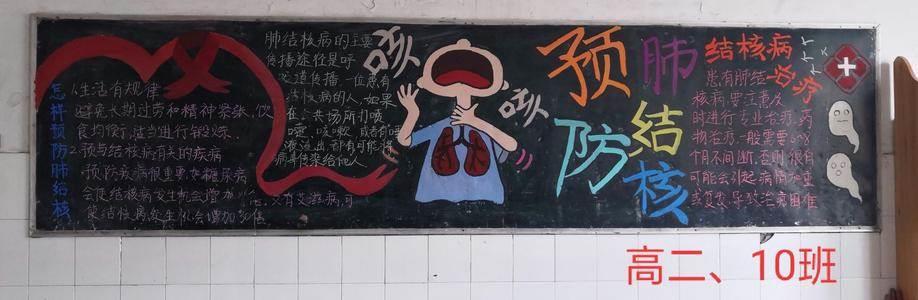 怎样预防肺结核
1.生活有规律
避免长期过劳和精神紧张,饮
食均衡,适当进行锻炼.
2.预与结核病有关的疾病
预防疾病很重要,如糖尿病
会使结核病发生机会增加
又有艾滋病,可
使结核病发生机会增加30倍
肺结核病的主要
传播途径是呼
吸道传播 一位患有
结核病的人,如果
在公共场所打喷
嚏、咳嗽、或者有唾
液溢出都有可能将
病毒传染给他人
咳
咳
预防
肺结核
结核病
治疗
患有肺结
核病,要注意及
时进行专业治疗,药
物治疗一般需要6~8
个月不间断,否则很有
可能会引起病情加重
或复发,导致治病困难
高二、10班